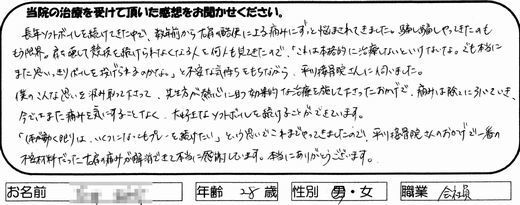 当院の治療を受けて頂いた感想をお聞かせください。
長年ソフトボールを続けてきた中で、数年前から右肩の酷使による痛みにずっと悩まされてきました。騙し騙しやってきたのも
もう限界。肩を壊して競技を続けられなくなる人を何人も見てきたので、「これは本格的に治療しないといけないな。でも本当に
また思いっきりボールを投げられるかな。」と不安な気持ちをもちながら、平川接骨院さんに伺いました。
僕のこんな思いを汲み取って下さって、先生方が熱心に且つ効果的な治療を施して下さったおかげで、痛みは除々に引いていき、
今ではまた痛みを気にすることなく、大好きなソフトボールを続けることができています。
「体が動く限りは、いくつになってもプレーを続けたい」という思いでこれまでやってきましたので、平川接骨院さんのおかげで一番の
不安材料だった右肩の痛みが解消できて本当に感謝しています。本当にありがとうございます。
お名前 年齢 28 歳 性別 男・女 職業 会社員